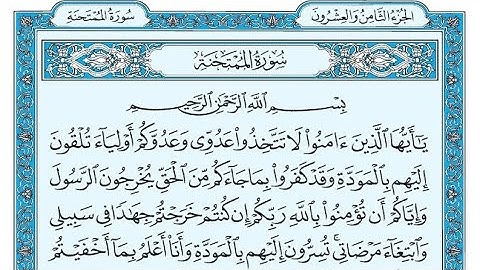 الجُزْءُ الثَّامِنُ وَالعِشْرُونَ
سُورَةُ المُمْتَحنَةِ
سُورَةُ المُمْتَحنَةِ
بِسْمِ ٱللَّهِ ٱلرَّحْمَٰنِ ٱلرَّحِيمِ
يَٰٓأَيُّهَا ٱلَّذِينَ ءَامَنُوا۟ لَا تَتَّخِذُوا۟ عَدُوِّى وَعَدُوَّكُمْ أَوْلِيَآءَ تُلْقُونَ
إِلَيْهِم بِٱلْمَوَدَّةِ وَقَدْ كَفَرُوا۟ بِمَا جَآءَكُم مِّنَ ٱلْحَقِّ يُخْرِجُونَ ٱلرَّسُولَ
وَإِيَّاكُمْ أَن تُؤْمِنُوا۟ بِٱللَّهِ رَبِّكُمْ إِن كُنتُمْ خَرَجْتُمْ جِهَٰدًا فِى سَبِيلِى
وَٱبْتِغَآءَ مَرْضَاتِى ۚ تُسِرُّونَ إِلَيْهِم بِٱلْمَوَدَّةِ وَأَنَا۠ أَعْلَمُ بِمَآ أَخْفَيْتُمْ